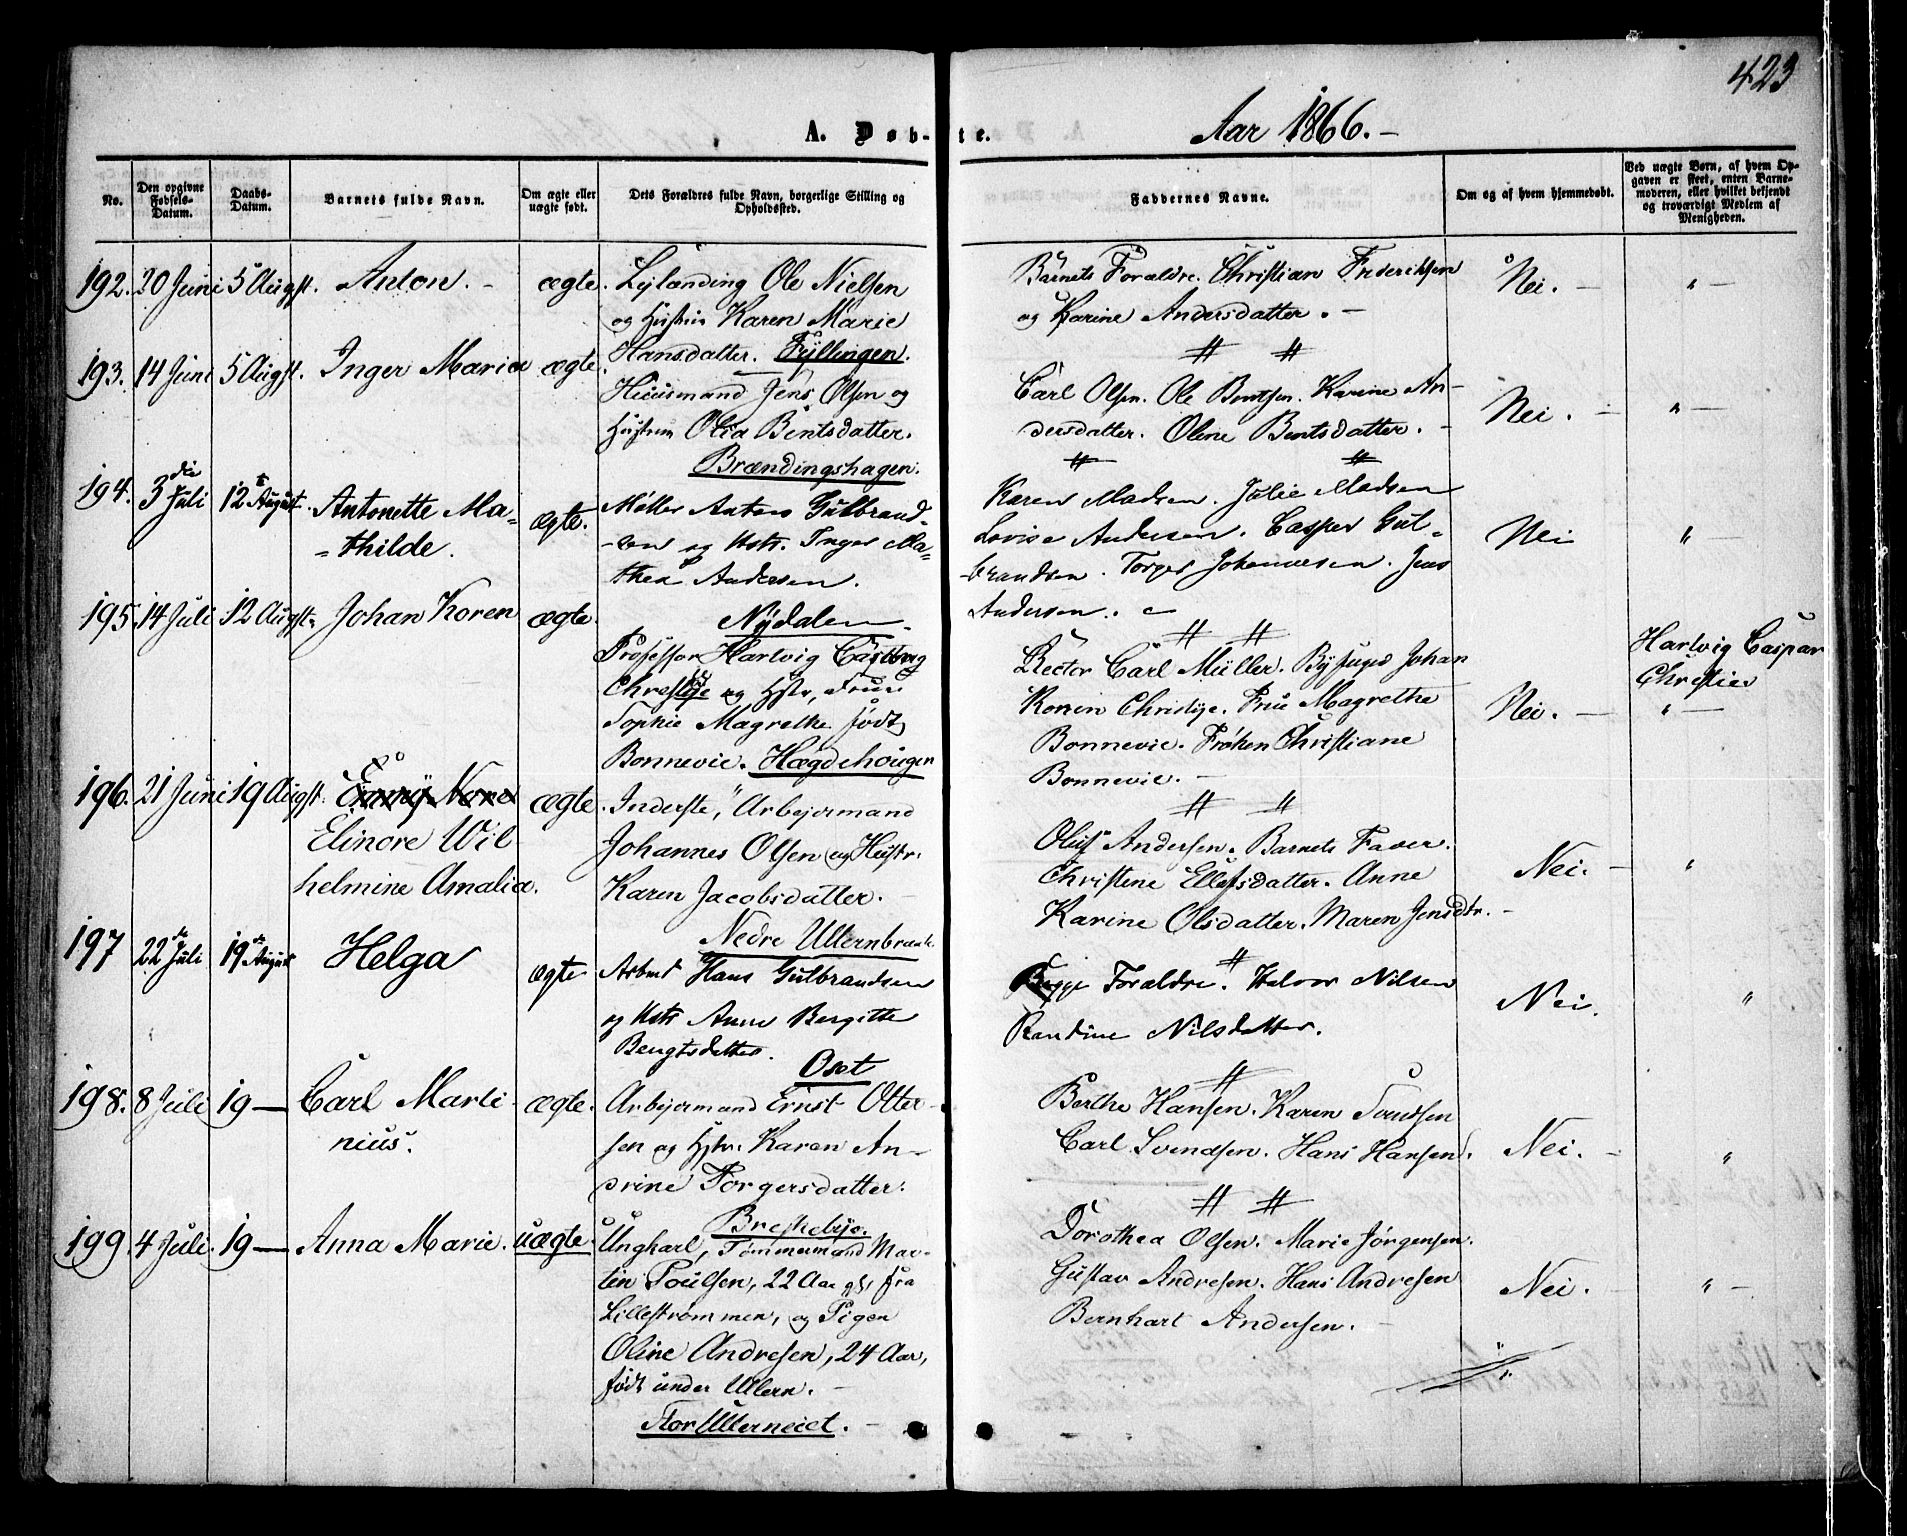 423
A. Døb-te. Aar 1866.-
No.
Den opgivne Fødsels-Datum.
Daabs-Datum.
Barnets fulde Navn.
Om ægte eller uægte født.
Dets Forældres fulde Navn, borgerlige Stilling og Opholdssted.
Faddernes Navne.
Om og af hvem hjemmedøbt.
Ved uægte Børn, af hvem Opgaven er skeet, enten Barnemoderen, eller hvilket bekjendt og troværdigt Medlem af Menigheden.
192. 20 Juni 5 Augst. Anton. - ægte.
Lejlænding Ole Nielsen
og Hustru Karen Marie
Hansdatter. Fyllingen.
Barnets Forældre. Christian Frederiksen
og Karine Andersdatter. -
Nei. - " -
193. 14 Juni 5 Augst. Inger Marie ægte.
Huusmand Jens Olsen og
Hustru Olia Bentsdatter.
Brændingshagen.
Carl Olsen. Ole Bentsen. Karine An-
dersdatter. Oline Bentsdatter. -
Nei. - " -
194. 3die Juli 12te August. Antonette Ma=
=thilde. ægte.
Møller Anton Gulbrand-
-sen og Hstr. Inger Ma=
thea Andersen.
Nydalen.
Karen Madsen. Julie Madsen
Lovise Andersen. Casper Gul-
brandsen. Torger Johannesen. Jens
Andersen.
Nei " -
195. 14 Juli 12 Augst. Johan Koren ægte.
Professor Hartvig Castberg
Christije og Hstr, Frue
Sophie Magrethe født
Bonnevie. Hægdehougen
Rector Carl Müller. Byfuged Johan
Koren Christije. Frue Magrethe
Bonnevie. Frøken Christiane
Bonnevie. -
Nei. -
Hartvig Caspar
Christies
" -
196. 21 Juni 19 Augst.
Elinore Wil
helmine Amalia. ægte.
Inderste, Arbejdsmand
Johannes Olsen og Hustr.
Karen Jacobsdatter. -
Nedre Ullernbraat.
Oluf Andersen. Barnets Fader.
Christene Ellefsdatter. Anne
Karine Olsdatter. Maren Jensdtr. -
Nei. - "
197 22de Juli 19de August Helga ægte
Arbmd Hans Gulbrandsen
og Hstr Anne Bergitte
Bengtsdatter.
Oset
Begge Forældre. Halvor Nilsen
Randine Nilsdatter.
Nei. "
198. 8 Juli 19 — Carl Marti-
nius. ægte.
Arbejdsmand Ernst Otter-
sen og Hstr. Karen An-
drine Torgersdatter.
Breskebyø.
Berthe Hansen. Karen Svendsen
Carl Svendsen. Hans Hansen.
Nei. - "
199. 4 Juli. 19 — Anna Marie. uægte.
Ungkarl, Tømmermand Mar-
tin Poulsen, 22 Aar gl, fra
Lillestrømmen, og Pigen
Oline Andresen, 24 Aar,
født under Ullern. -
Stor Ullerneiet. -
Dorothea Olsen. Marie Jørgensen.
Gustav Andresen. Hans Andresen
Bernhart Andersen. -
Nei. - " -